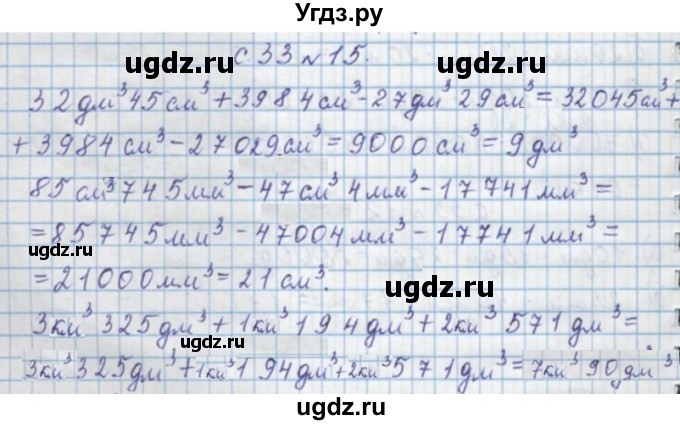 Угдз.ру
с. 33 № 15.
ugdz.ru ugdz.ru
32 дм³ 45 см³ + 3984 см³ - 27 дм³ 29 см³ = 32045 см³ +
+ 3984 см³ - 27029 см³ = 9000 см³ = 9 дм³
ugdz.ru
85 см³ 745 мм³ - 47 см³ 4 мм³ - 17741 мм³ =
= 85745 мм³ - 47004 мм³ - 17741 мм³ =
ugdz.ru
= 21000 мм³ = 21 см³.
ugdz.ru ugdz.ru
3 км³ 325 дм³ + 1 км³ 194 дм³ + 2 км³ 571 дм³ =
3 км³ 325 дм³ + 1 км³ 194 дм³ + 2 км³ 571 дм³ = 7 км³ 90 дм³
ugdz.ru